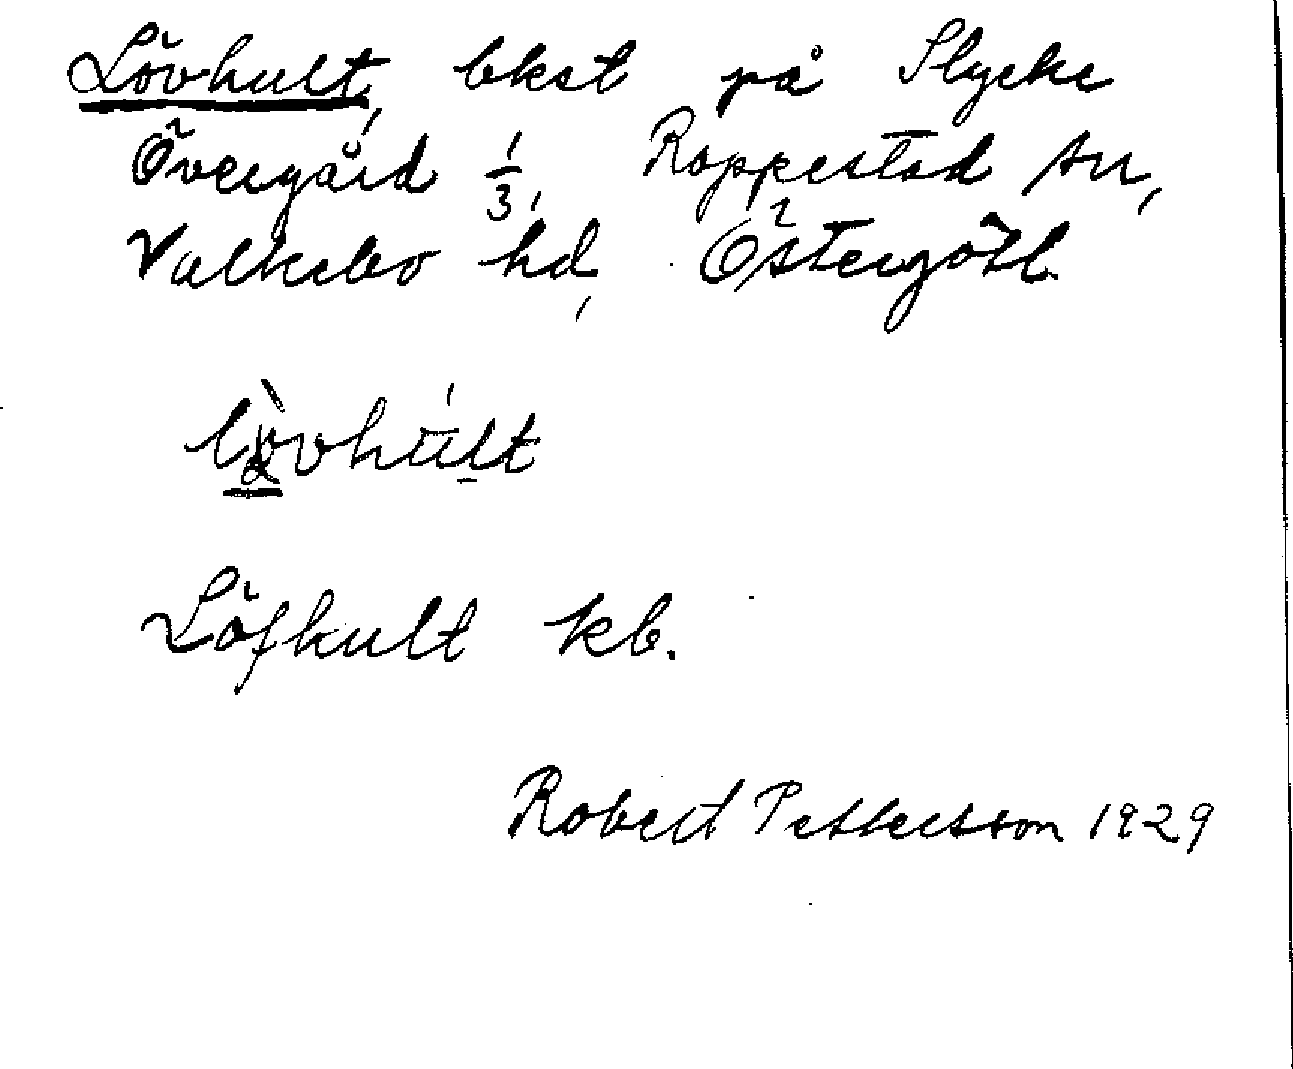 Lövhult, bkst på Slycke
Övergård 1/3, Rappestad sn,
Valkebo hd, Östergötl.
Löfhult kb.
Robert Pettersson 1929